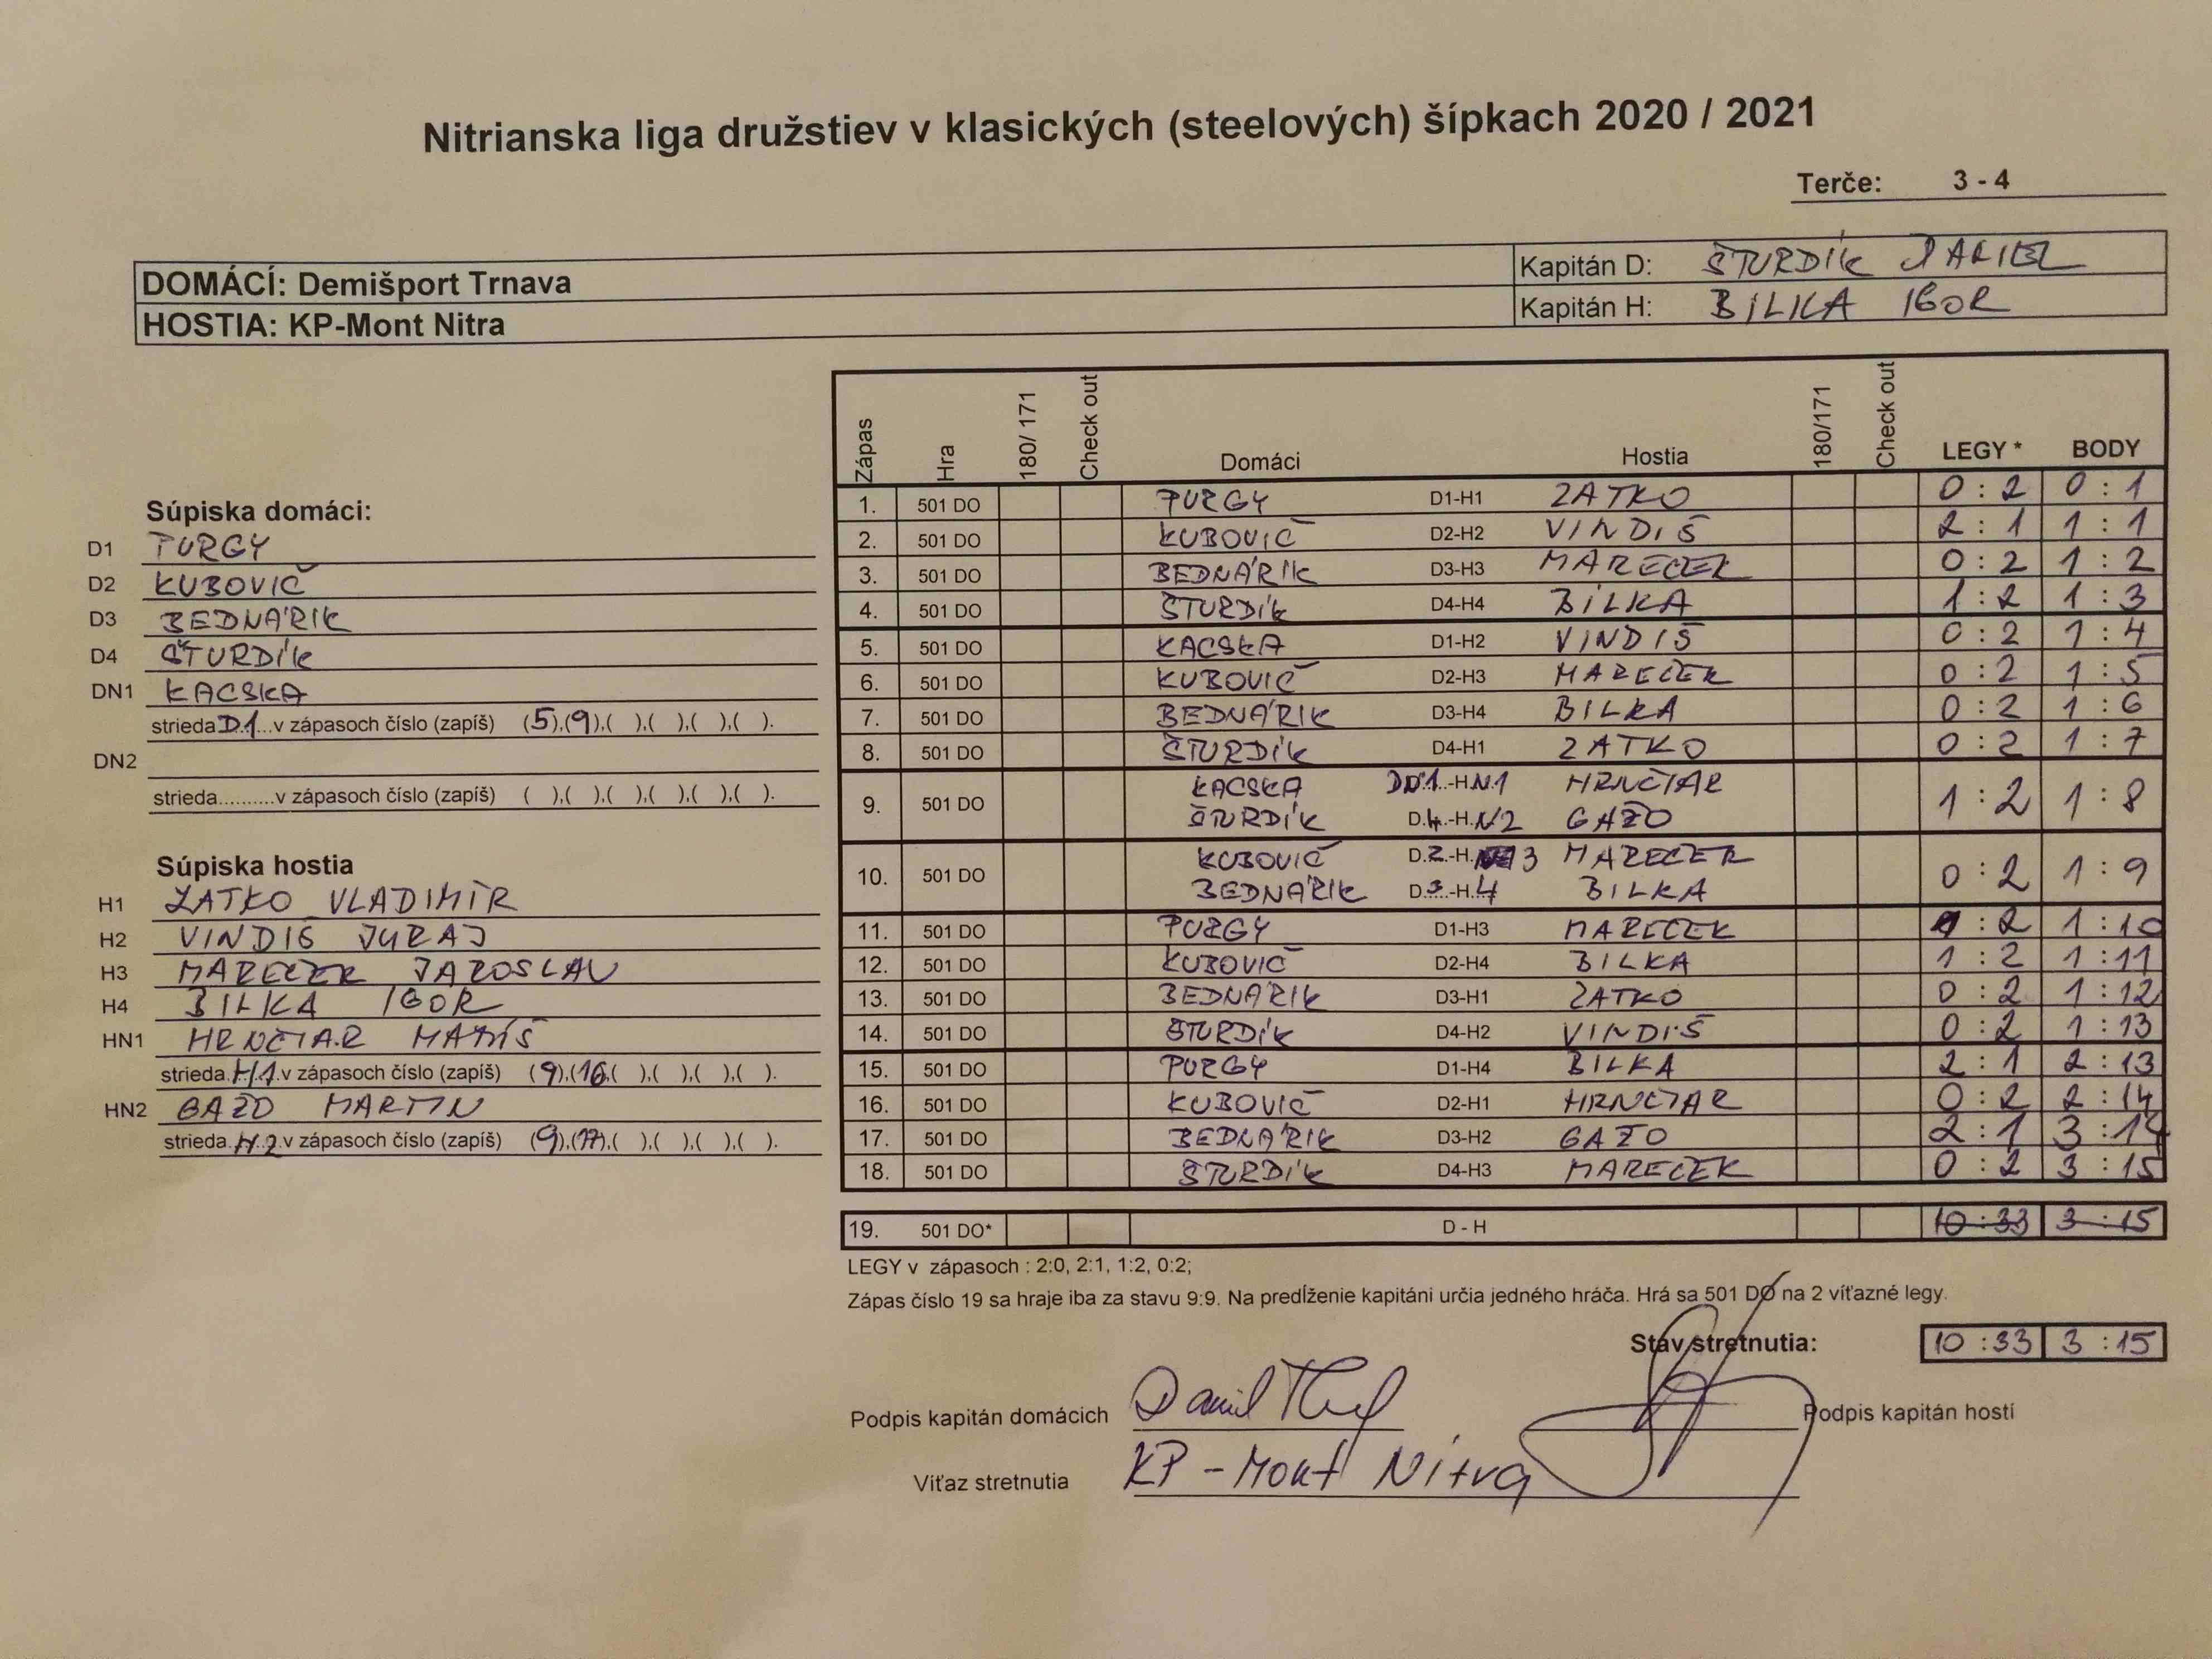 Nitrianska liga družstiev v klasických (steelových) šípkach 2020 / 2021
Terče: 3 - 4
DOMÁCÍ: Demišport Trnava Kapitán D: ŠTURDÍK DANIEL
HOSTIA: KP-Mont Nitra Kapitán H: BILKA IGOR
Zápas Hra 180/ 171 Check out Domáci Hostia 180/171 Check out LEGY * BODY
Súpiska domáci:
D1 PURGY
D2 KUBOVIČ
D3 BEDNÁRIK
D4 ŠTURDÍK
DN1 KACSKA
strieda D.1...v zápasoch číslo (zapíš) (5),(9),( ),( ),( ),( ).
DN2
strieda..........v zápasoch číslo (zapíš) ( ),( ),( ),( ),( ),( ).
Súpiska hostia
H1 ZATKO VLADIMÍR
H2 VINDIŠ JURAJ
H3 MARECEK JAROSLAV
H4 BILKA IGOR
HN1 HRNČIAR MATÚŠ
strieda.H.1.v zápasoch číslo (zapíš) (9),(16,( ),( ),( ),( ).
HN2 GAŽO MARTIN
strieda.H.2.v zápasoch číslo (zapíš) (9),(17),( ),( ),( ),( ).
1. 501 DO PURGY D1-H1 ZATKO 0 : 2 0 : 1
2. 501 DO KUBOVIČ D2-H2 VINDIŠ 2 : 1 1 : 1
3. 501 DO BEDNÁRIK D3-H3 MARECEK 0 : 2 1 : 2
4. 501 DO ŠTURDÍK D4-H4 BILKA 1 : 2 1 : 3
5. 501 DO KACSKA D1-H2 VINDIŠ 0 : 2 1 : 4
6. 501 DO KUBOVIČ D2-H3 MARECEK 0 : 2 1 : 5
7. 501 DO BEDNÁRIK D3-H4 BILKA 0 : 2 1 : 6
8. 501 DO ŠTURDÍK D4-H1 ZATKO 0 : 2 1 : 7
KACSKA DN1.-H.N.1 HRNČIAR
9. 501 DO 1 : 2 1 : 8
ŠTURDÍK D.4.-H.N2 GAŽO
KUBOVIČ D.2.-H. 3 MARECEK
10. 501 DO 0 : 2 1 : 9
BEDNÁRIK D.3.-H.4 BILKA
11. 501 DO PURGY D1-H3 MARECEK : 2 1 : 10
12. 501 DO KUBOVIČ D2-H4 BILKA 1 : 2 1 : 11
13. 501 DO BEDNÁRIK D3-H1 ZATKO 0 : 2 1 : 12
14. 501 DO ŠTURDÍK D4-H2 VINDIŠ 0 : 2 1 : 13
15. 501 DO PURGY D1-H4 BILKA 2 : 1 2 : 13
16. 501 DO KUBOVIČ D2-H1 HRNČIAR 0 : 2 2 : 14
17. 501 DO BEDNÁRIK D3-H2 GAŽO 2 : 1 3 : 14
18. 501 DO ŠTURDÍK D4-H3 MARECEK 0 : 2 3 : 15
19. 501 DO* D - H 10 : 33 3 : 15
LEGY v zápasoch : 2:0, 2:1, 1:2, 0:2;
Zápas číslo 19 sa hraje iba za stavu 9:9. Na predĺženie kapitáni určia jedného hráča. Hrá sa 501 DO na 2 víťazné legy.
Stav stretnutia: 10 : 33 3 : 15
Podpis kapitán domácich Podpis kapitán hostí
Víťaz stretnutia KP - Mont Nitra